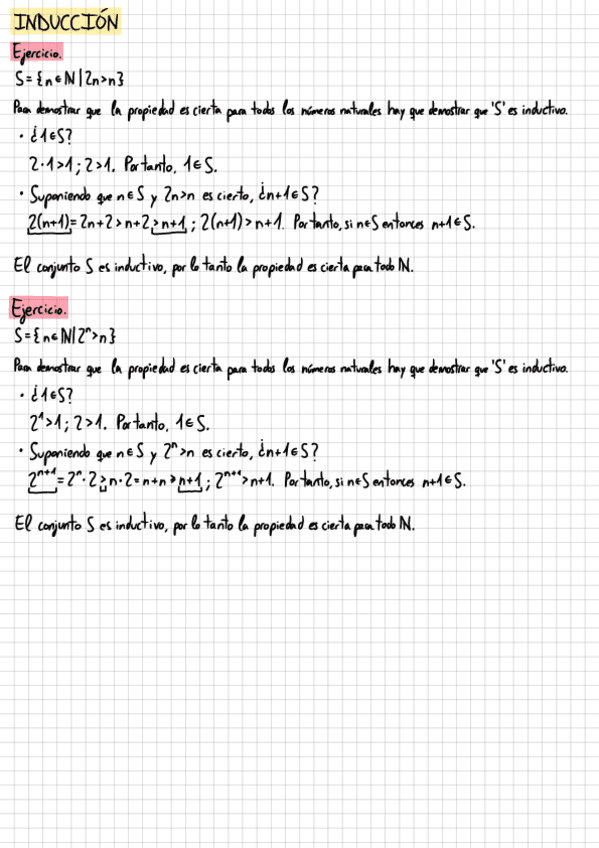 INDUCCIÓN
Ejercicio.
S = {n ∈ ℕ | 2n > n}
Para demostrar que la propiedad es cierta para todos los números naturales hay que demostrar que 'S' es inductivo.
· ¿1 ∈ S?
2·1 > 1 ; 2 > 1. Por tanto, 1 ∈ S.
· Suponiendo que n ∈ S y 2n > n es cierto, ¿n+1 ∈ S?
2(n+1) = 2n+2 > n+2 > n+1 ; 2(n+1) > n+1. Por tanto, si n ∈ S entonces n+1 ∈ S.
El conjunto S es inductivo, por lo tanto la propiedad es cierta para todo ℕ.
Ejercicio.
S = {n ∈ ℕ | 2ⁿ > n}
Para demostrar que la propiedad es cierta para todos los números naturales hay que demostrar que 'S' es inductivo.
· ¿1 ∈ S?
2¹ > 1 ; 2 > 1. Por tanto, 1 ∈ S.
· Suponiendo que n ∈ S y 2ⁿ > n es cierto, ¿n+1 ∈ S?
2ⁿ⁺¹ = 2ⁿ · 2 > n · 2 = n+n ≥ n+1 ; 2ⁿ⁺¹ > n+1. Por tanto, si n ∈ S entonces n+1 ∈ S.
El conjunto S es inductivo, por lo tanto la propiedad es cierta para todo ℕ.